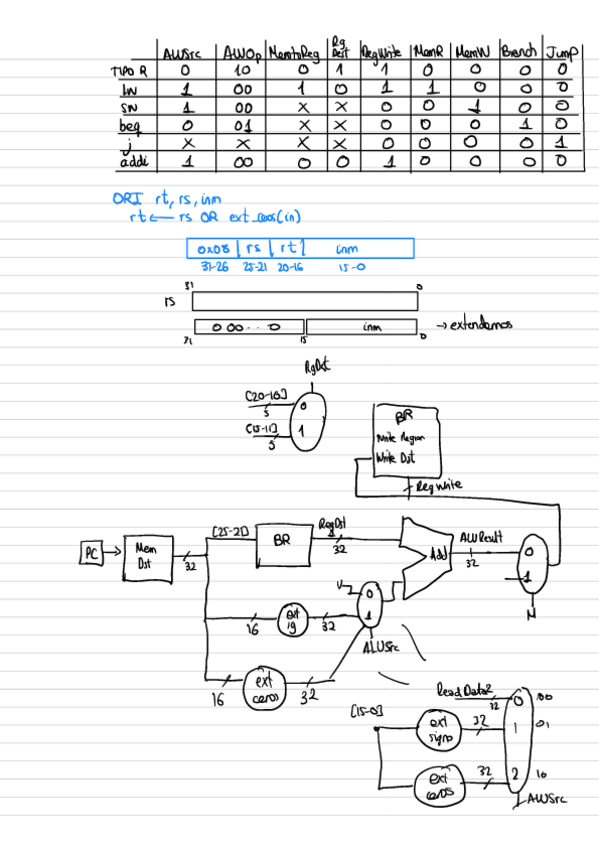 ALUSrc ALUOp MemtoReg Rg Dest RegWrite MemR MemW Branch Jump
TIPO R 0 10 0 1 1 0 0 0 0
lw 1 00 1 0 1 1 0 0 0
sw 1 00 X X 0 0 1 0 0
beq 0 01 X X 0 0 0 1 0
j X X X X 0 0 0 0 1
addi 1 00 0 0 1 0 0 0 0
ORI rt, rs, inm
rt ← rs OR ext_ceros(in)
0x08 rs rt inm
31-26 25-21 20-16 15-0
31 0
rs
0 00... 0 inm → extendemos
31 15 0
RgDst
[20-16] 0
5
[15-11] 1
5
BR
Write Region
Write Dat
RegWrite
[25-21] RegDst
PC Mem Dst 32 BR 32 Add ALUResult 32 0
1
M
V 0
16 ext ig 32 1
ALUSrc
16 ext ceros 32
Read Data2 32 0 00
[15-0]
ext signo 32 1 01
ext ceros 32 2 10
ALUSrc